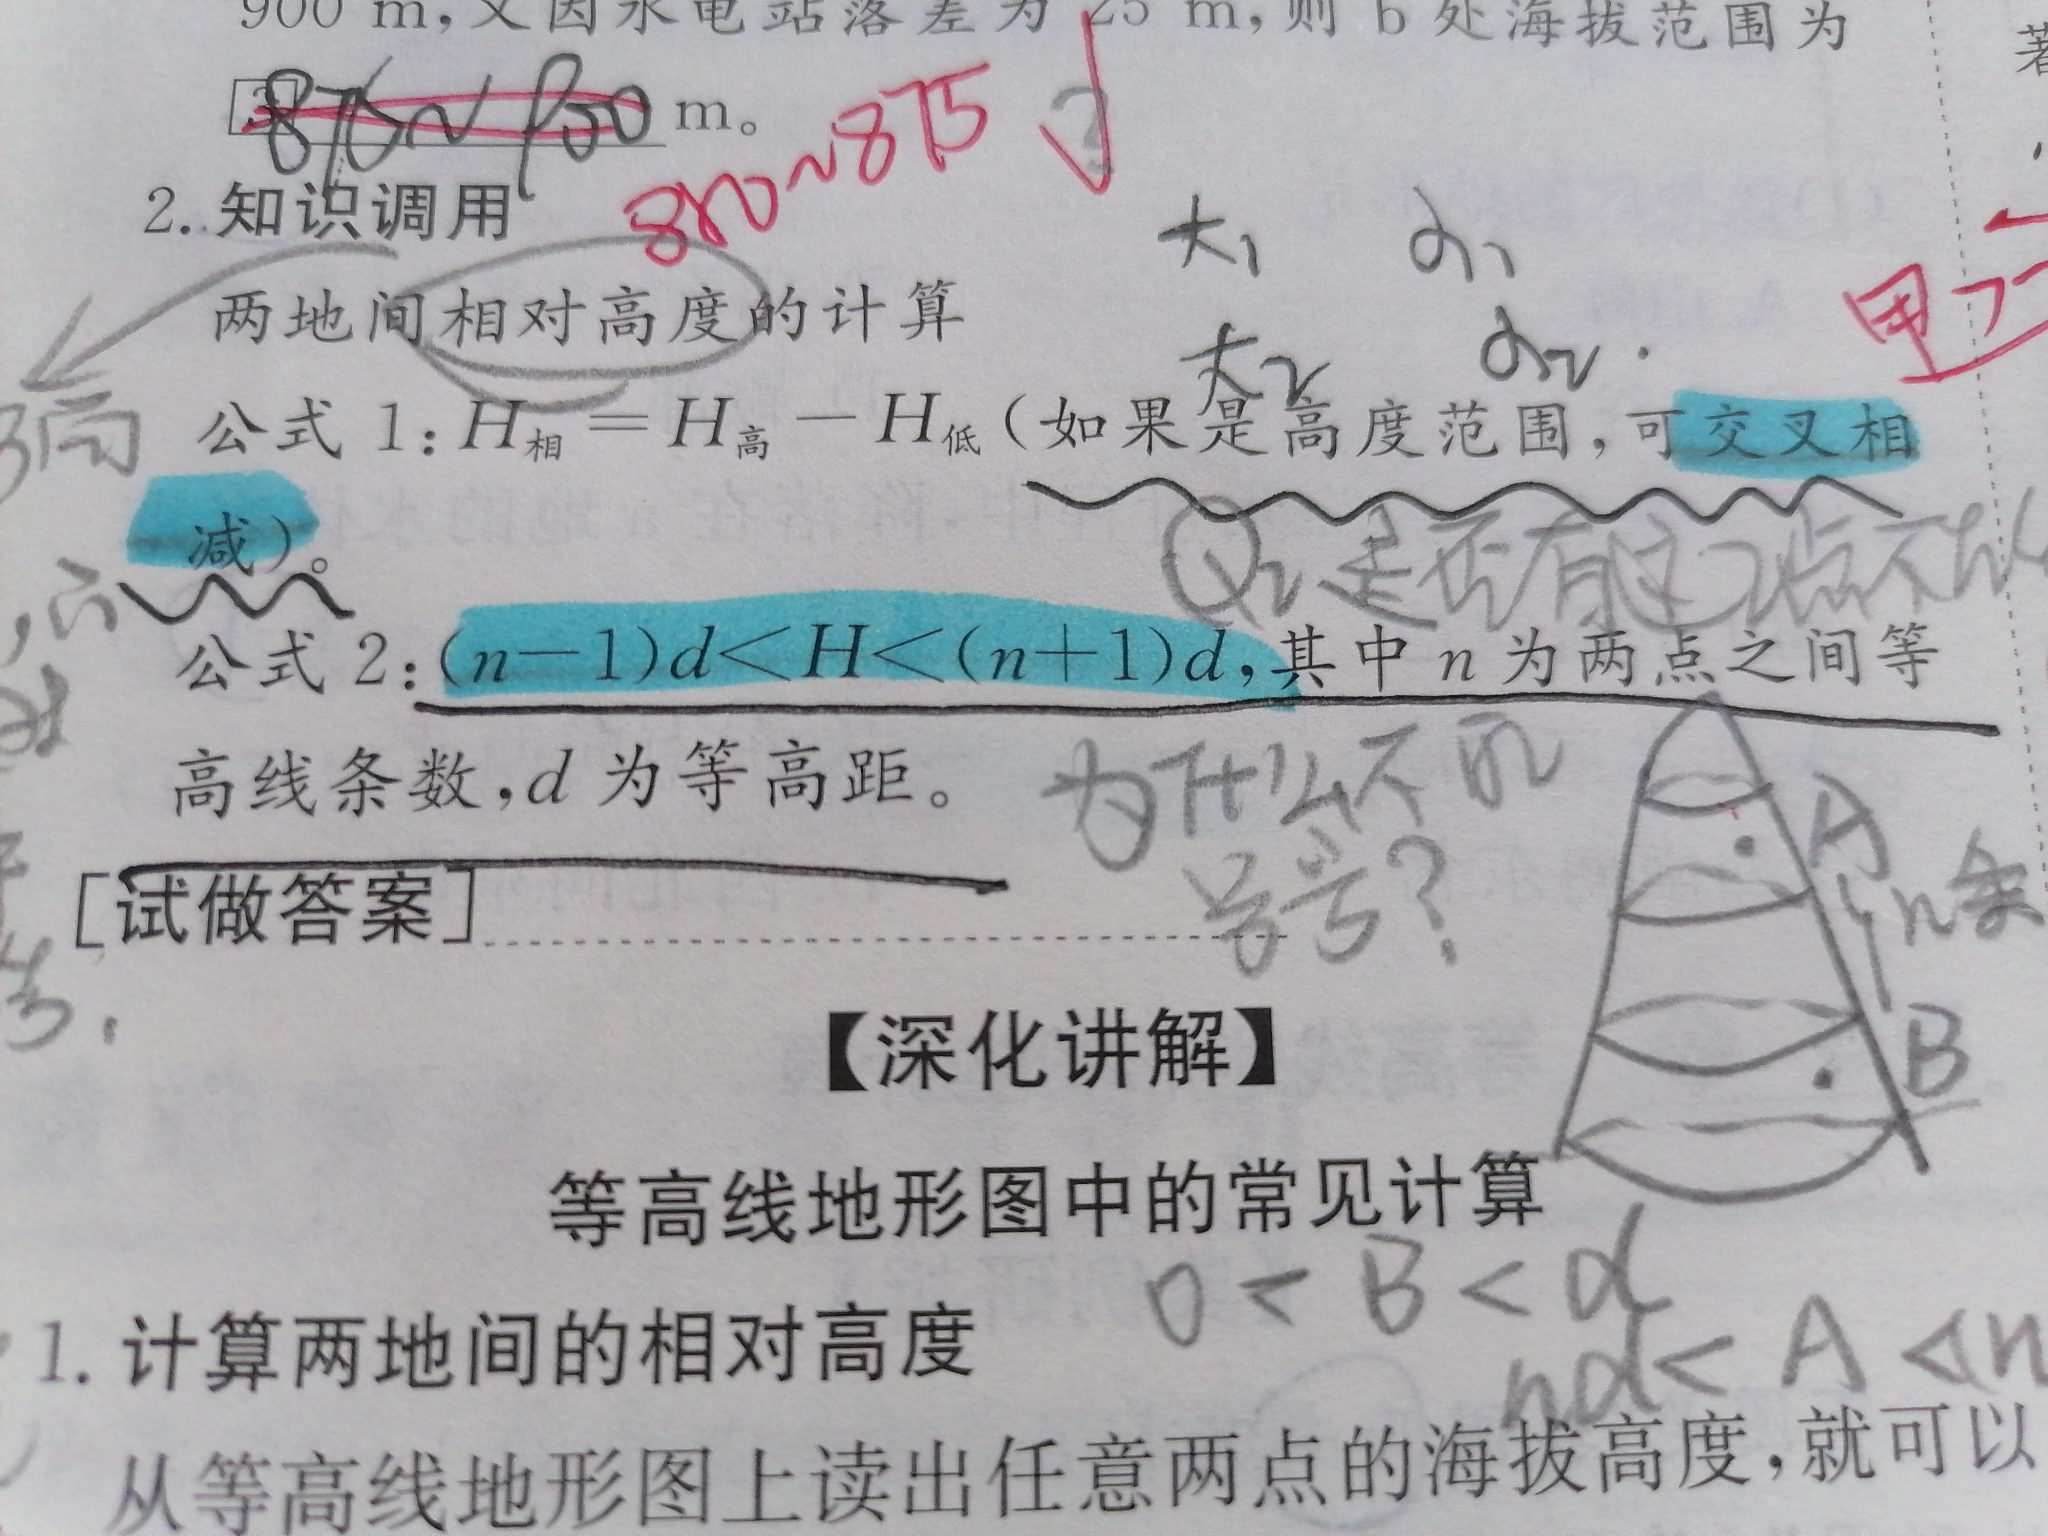 900 m,又因水电站落差为 25 m,则 b 处海拔范围为
3 m。
800~875
2. 知识调用
大1 小1
两地间相对高度的计算
大2 小2
甲
公式 1:H相=H高-H低(如果是高度范围,可交叉相
减)。
Q2是否有这2点不
公式 2:(n-1)d<H<(n+1)d,其中 n 为两点之间等
高线条数,d 为等高距。
为什么不取
等号?
A
n条
B
[试做答案]
【深化讲解】
等高线地形图中的常见计算
0 < B < d
1. 计算两地间的相对高度
nd < A < n
从等高线地形图上读出任意两点的海拔高度,就可以